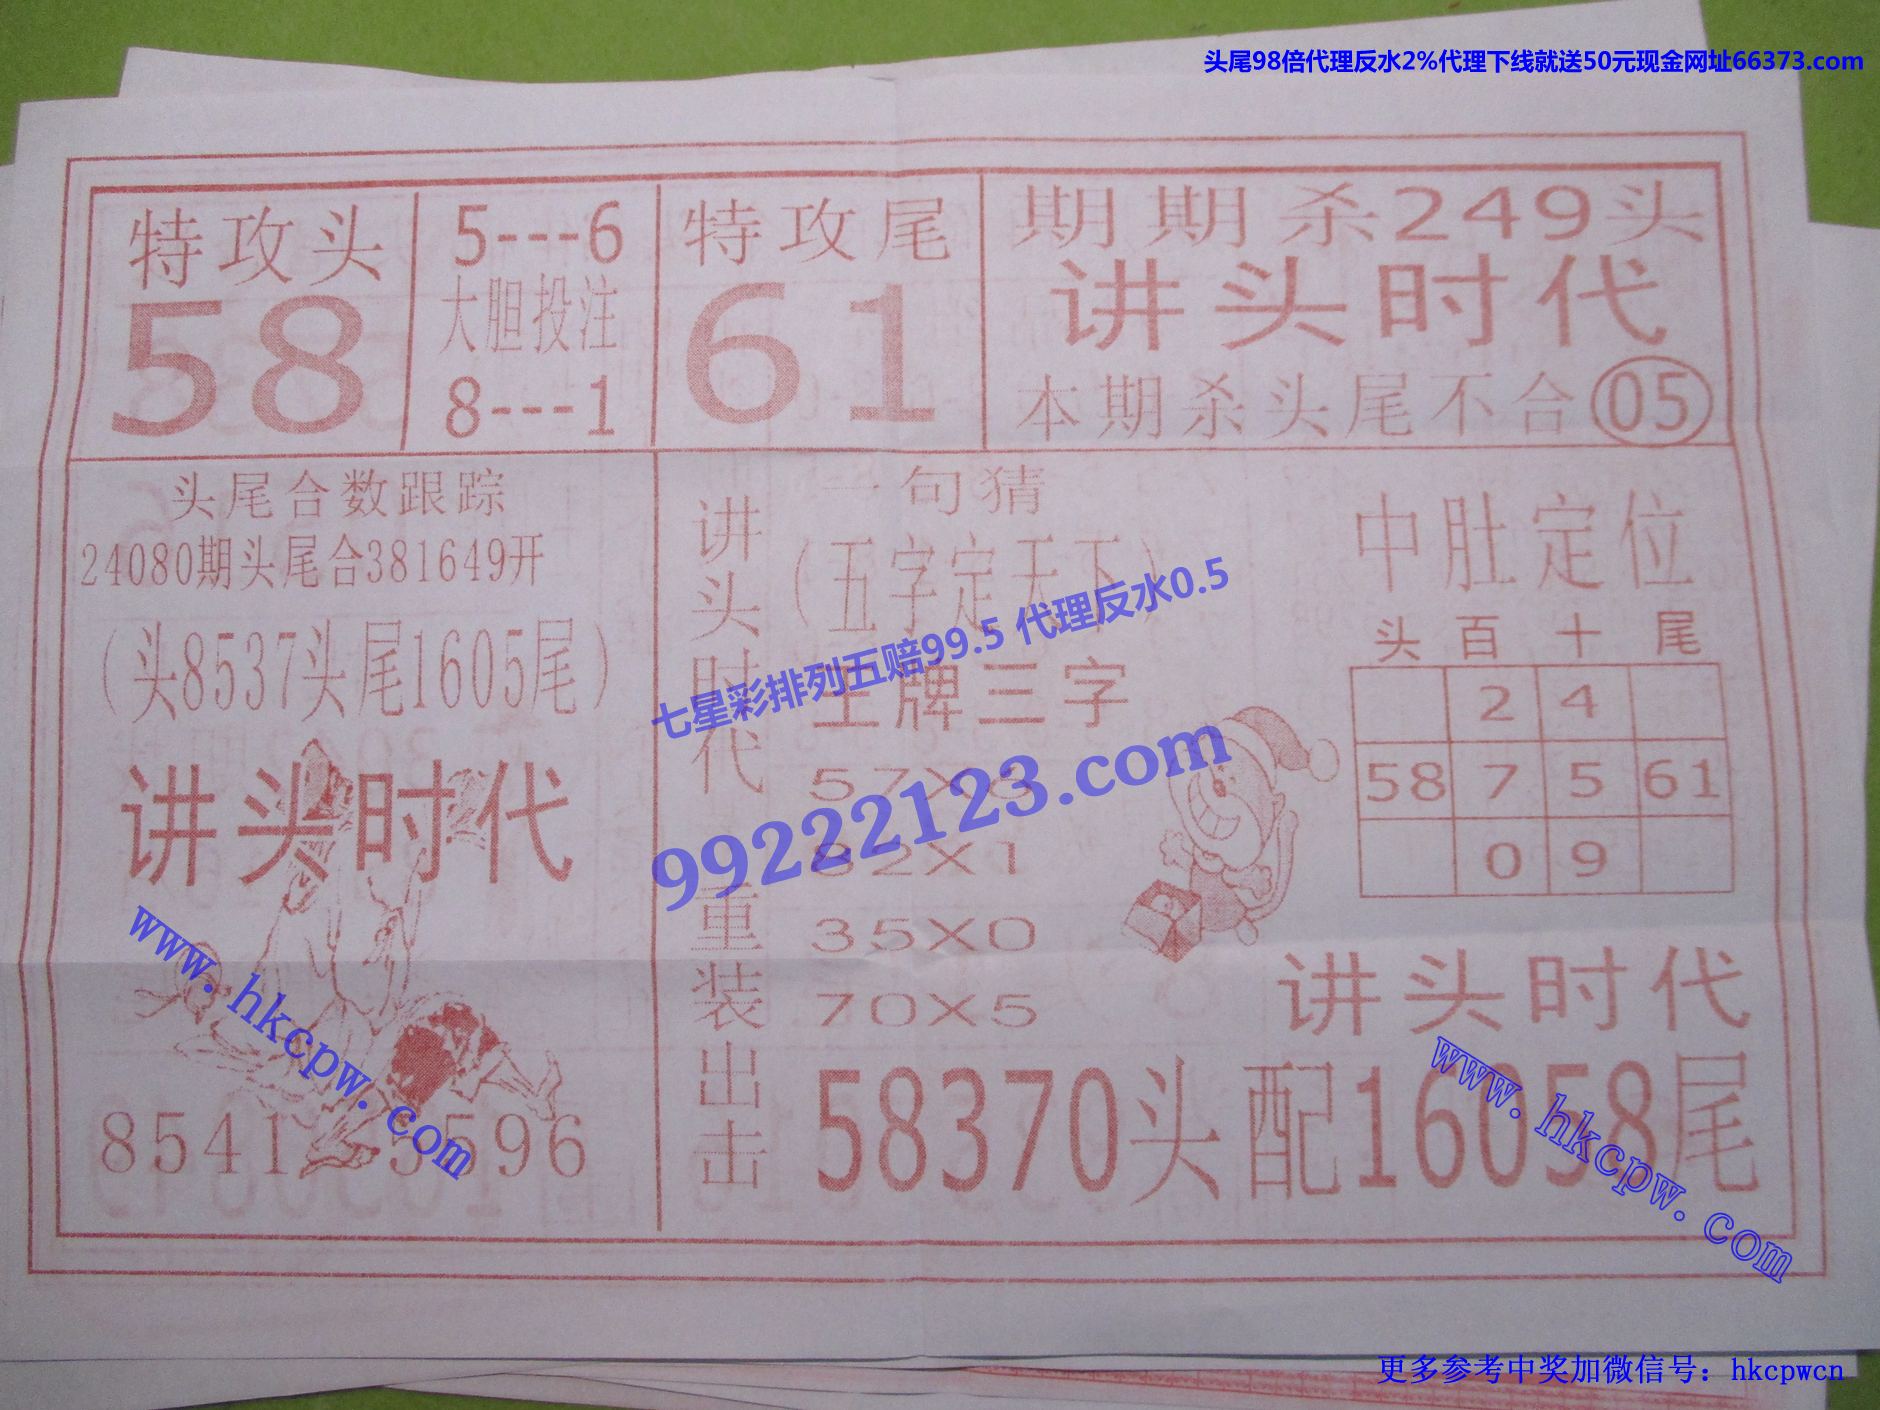 头尾98倍代理反水2%代理下线就送50元现金网址66373.com
特攻头
58
5---6
大胆投注
8---1
特攻尾
61
期期杀249头
讲头时代
本期杀头尾不合05
头尾合数跟踪
24080期头尾合381649开
(头8537头尾1605尾)
讲头时代
8541
5596
讲头时代重装出击
一句猜
(五字定天下)
王牌三字
57X8
82X1
35X0
70X5
中肚定位
头 百 十 尾
2 4
58 7 5 61
0 9
讲头时代
58370头配16058尾
七星彩排列五赔99.5 代理反水0.5
99222123.com
www.hkcpw.com
www.hkcpw.com
更多参考中奖加微信号：hkcpwcn